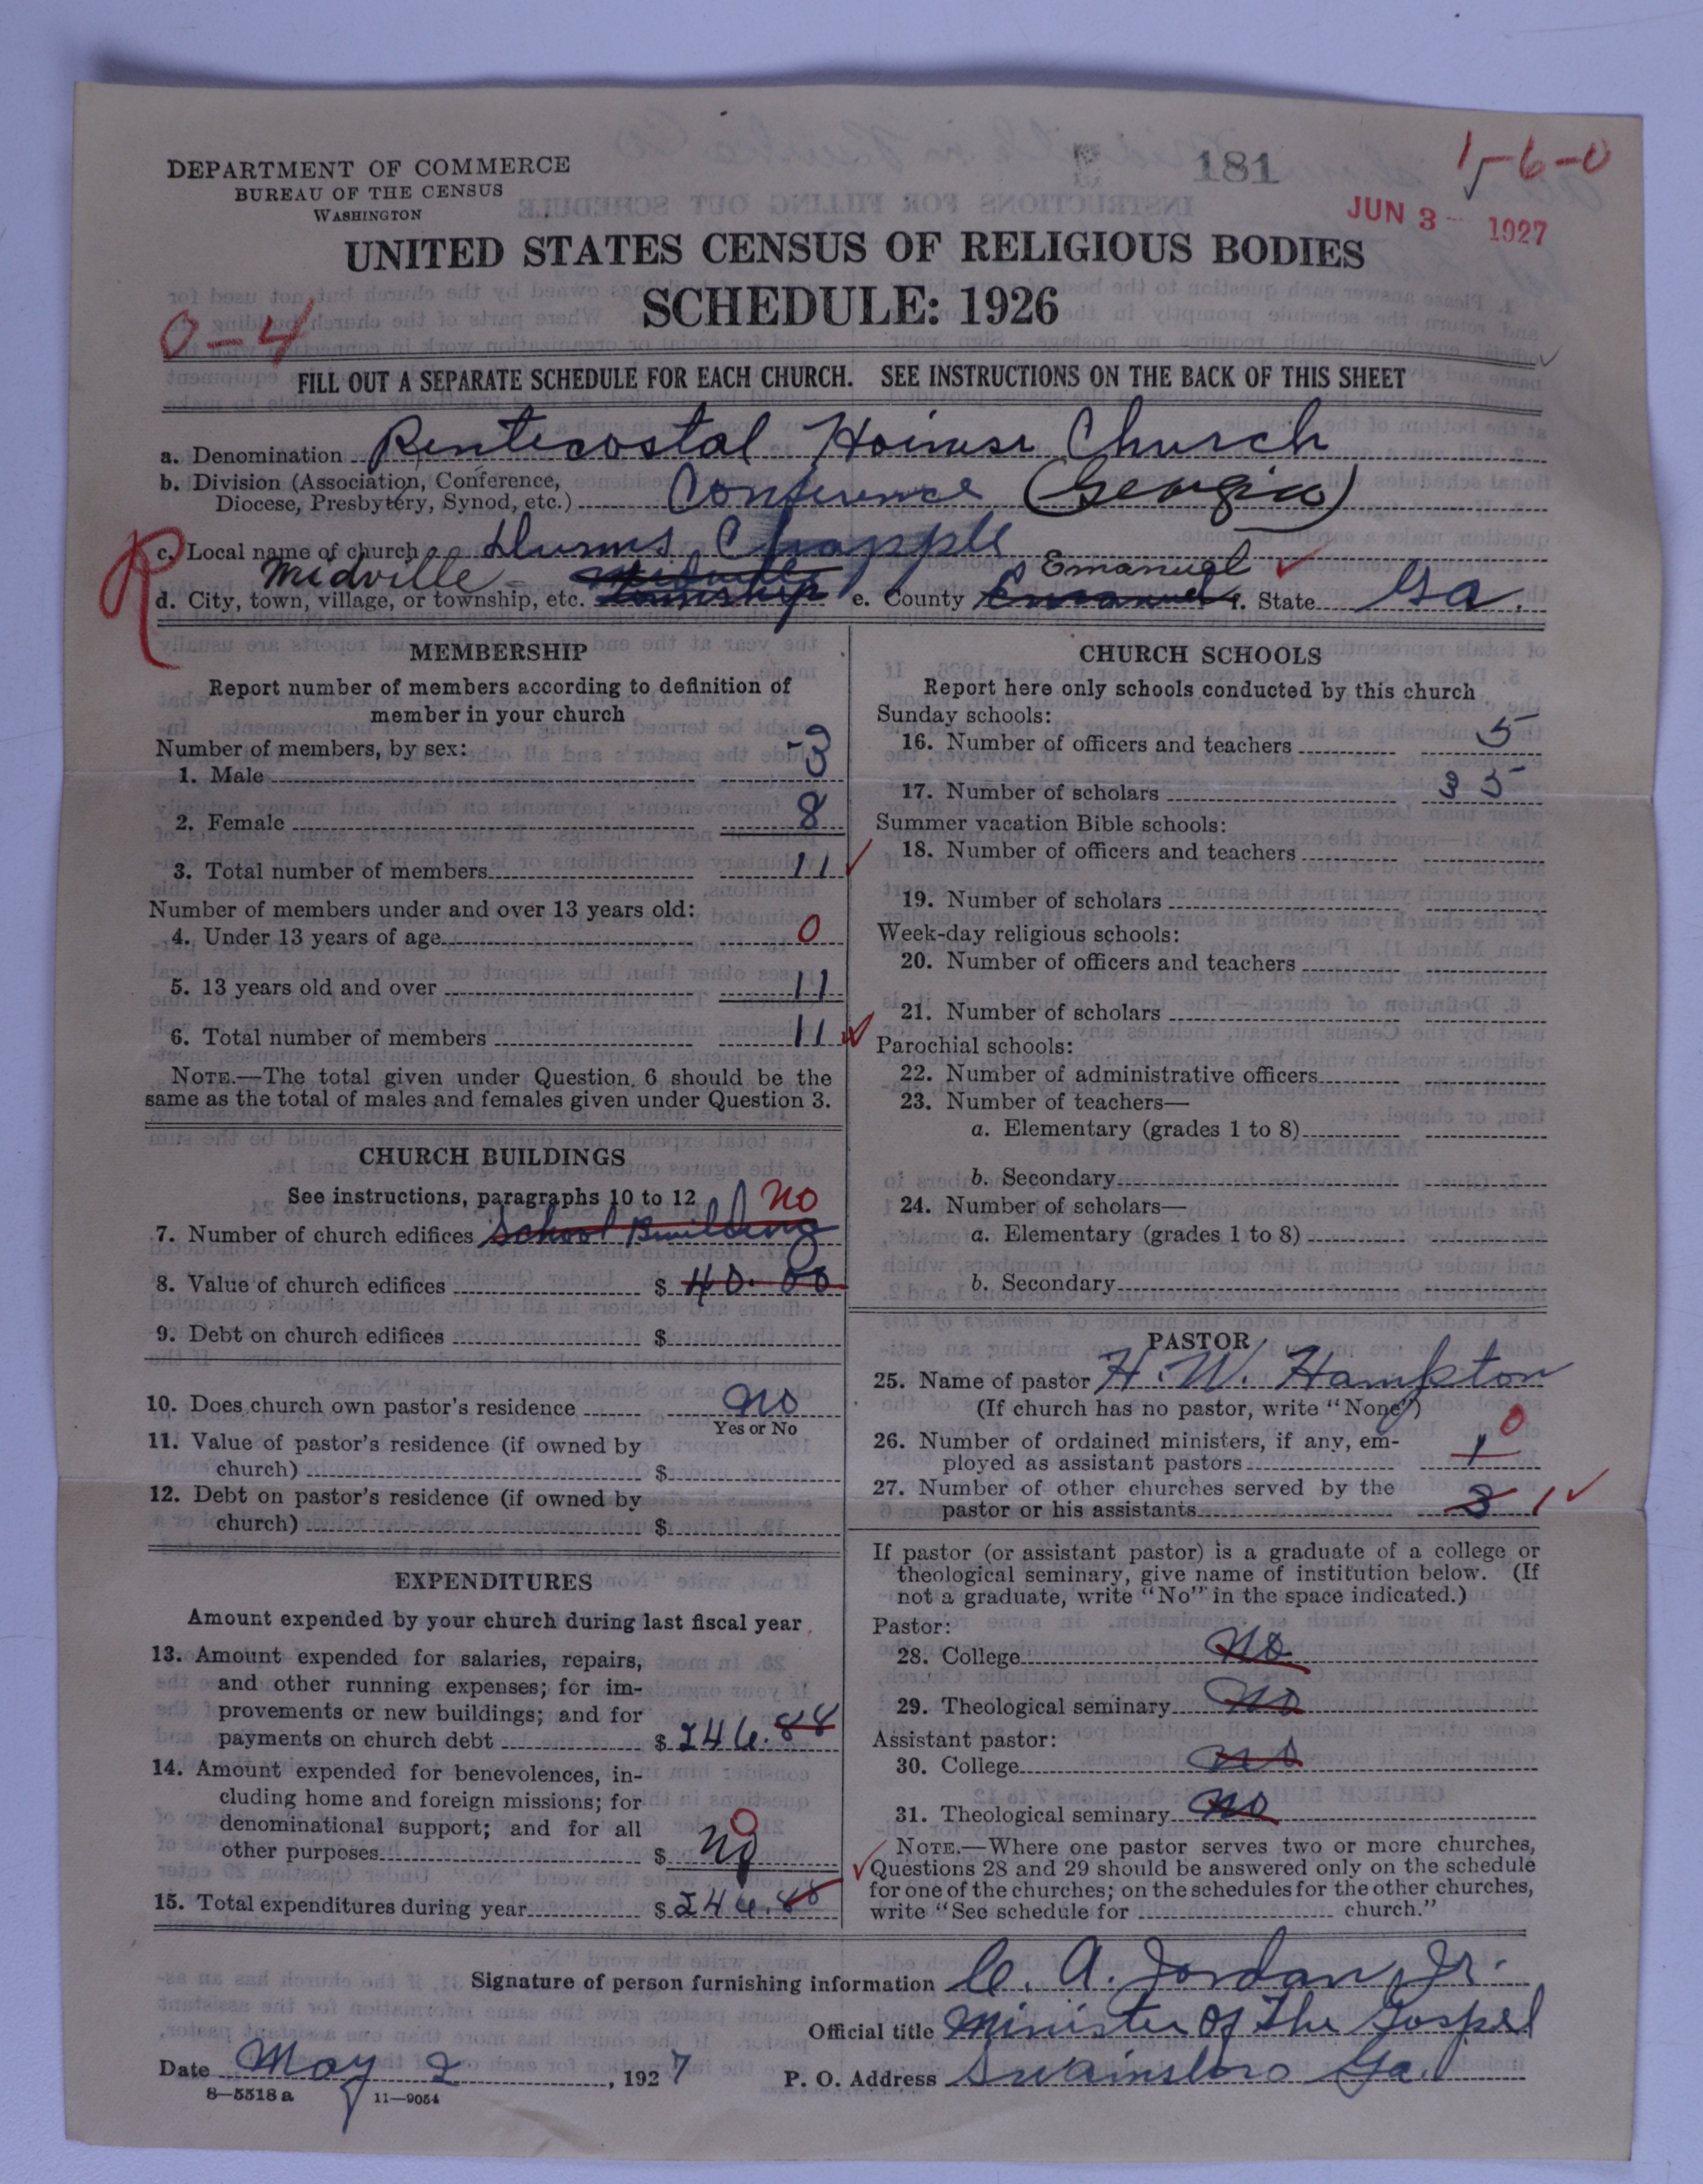 181
1-6-0
JUN 3 - 1927
DEPARTMENT OF COMMERCE
BUREAU OF THE CENSUS
WASHINGTON
UNITED STATES CENSUS OF RELIGIOUS BODIES
SCHEDULE: 1926
0-4
FILL OUT A SEPARATE SCHEDULE FOR EACH CHURCH. SEE INSTRUCTIONS ON THE BACK OF THIS SHEET
a. Denomination Pentecostal Church
b. Division (Association, Conference,
Diocese, Presbytery, Synod, etc.) Conference (Georgia)
R
c. Local name of church Chapple
Midville - Midville Emanuel
d. City, town, village, or township, etc. township e. County Emanuel f. State Ga.
MEMBERSHIP
Report number of members according to definition of
member in your church
Number of members, by sex:
1. Male 3
2. Female 8
3. Total number of members 11
Number of members under and over 13 years old:
4. Under 13 years of age 0
5. 13 years old and over 11
6. Total number of members 11
NOTE.—The total given under Question 6 should be the
same as the total of males and females given under Question 3.
CHURCH BUILDINGS
See instructions, paragraphs 10 to 12 no
7. Number of church edifices School Building
8. Value of church edifices $ 40.00
9. Debt on church edifices $
10. Does church own pastor's residence no
Yes or No
11. Value of pastor's residence (if owned by
church) $
12. Debt on pastor's residence (if owned by
church) $
EXPENDITURES
Amount expended by your church during last fiscal year
13. Amount expended for salaries, repairs,
and other running expenses; for im-
provements or new buildings; and for
payments on church debt $ 246.88
14. Amount expended for benevolences, in-
cluding home and foreign missions; for
denominational support; and for all
other purposes $ no 0
15. Total expenditures during year $ 246.88
CHURCH SCHOOLS
Report here only schools conducted by this church
Sunday schools:
16. Number of officers and teachers 5
17. Number of scholars 35
Summer vacation Bible schools:
18. Number of officers and teachers
19. Number of scholars
Week-day religious schools:
20. Number of officers and teachers
21. Number of scholars
Parochial schools:
22. Number of administrative officers
23. Number of teachers—
a. Elementary (grades 1 to 8)
b. Secondary
24. Number of scholars—
a. Elementary (grades 1 to 8)
b. Secondary
PASTOR
25. Name of pastor H. W. Hampton
(If church has no pastor, write "None")
26. Number of ordained ministers, if any, em-
ployed as assistant pastors 1 0
27. Number of other churches served by the
pastor or his assistants 3 1
If pastor (or assistant pastor) is a graduate of a college or
theological seminary, give name of institution below. (If
not a graduate, write "No" in the space indicated.)
Pastor:
28. College no
29. Theological seminary no
Assistant pastor:
30. College no
31. Theological seminary no
NOTE.—Where one pastor serves two or more churches,
Questions 28 and 29 should be answered only on the schedule
for one of the churches; on the schedules for the other churches,
write "See schedule for church."
Signature of person furnishing information C. A. Jordan Jr.
Official title Minister Of The Gospel
Date May 2, 1927 P. O. Address Swainsboro Ga.
8—5518 a 11—9054